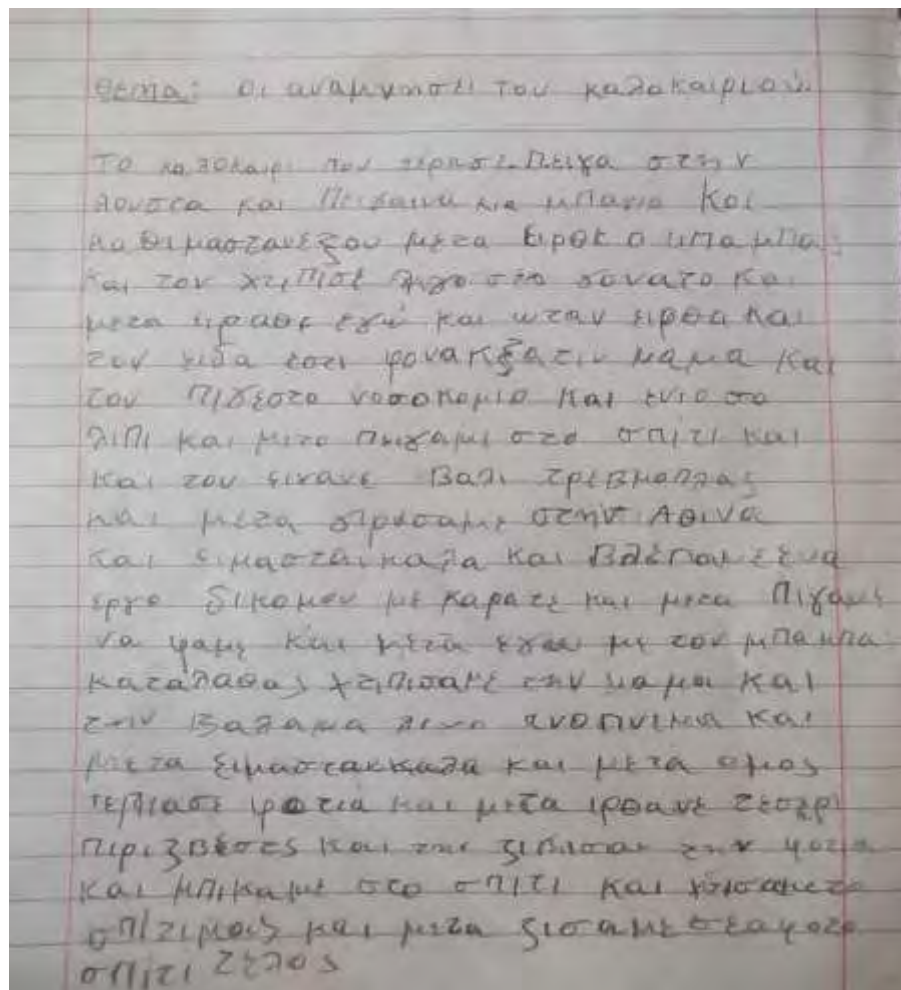 θεμα: οι αναμνησει του καλοκαιριού
Το καλοκαιρι που περησε. Πειγα στην
λουστα και Πειγαινα για μπανιο Και
καθιμαστανεξου μετα ειρθε ο μπαμπα
και τον χτιπισε λιγο στο γονατο και
μετα ειρθαε εγω και ωταν ειρθα και
τον ειδα ετσι φοναξα τιν μαμα και
τον πιγεστο νοσοκομιο και ενιοσο
λιπι και μετα πειγαμι στο σπιτι και
και του ειχανε Βαλι τρεις
και μετα γιρισαμε στην Αθινα
και ειμασται καλα και Βλέπαμε ενα
εργο με καρατε και μετα Πιγαμε
να φαμε και μετα εγω με τον μπαμπα
καταλαθας χτιπισαμε την μαμα και
την Βαλαμε και
μετα ειμαστακκαλα και μετα ομος
επιασε φοτιά και μετα ιρθανε τεσερι
πιριζβέστες και την την φοτια
και μπικαμε στο σπιτι και
σπιτιμας και μετα ζισαμε στο
σπιτι τελος